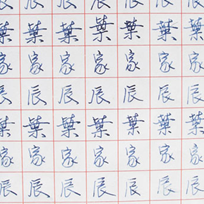 葉葉葉葉葉葉葉
家家家家家家家
辰辰辰辰辰辰辰
葉葉葉葉葉葉葉
家家家家家家家
辰辰辰辰辰辰辰